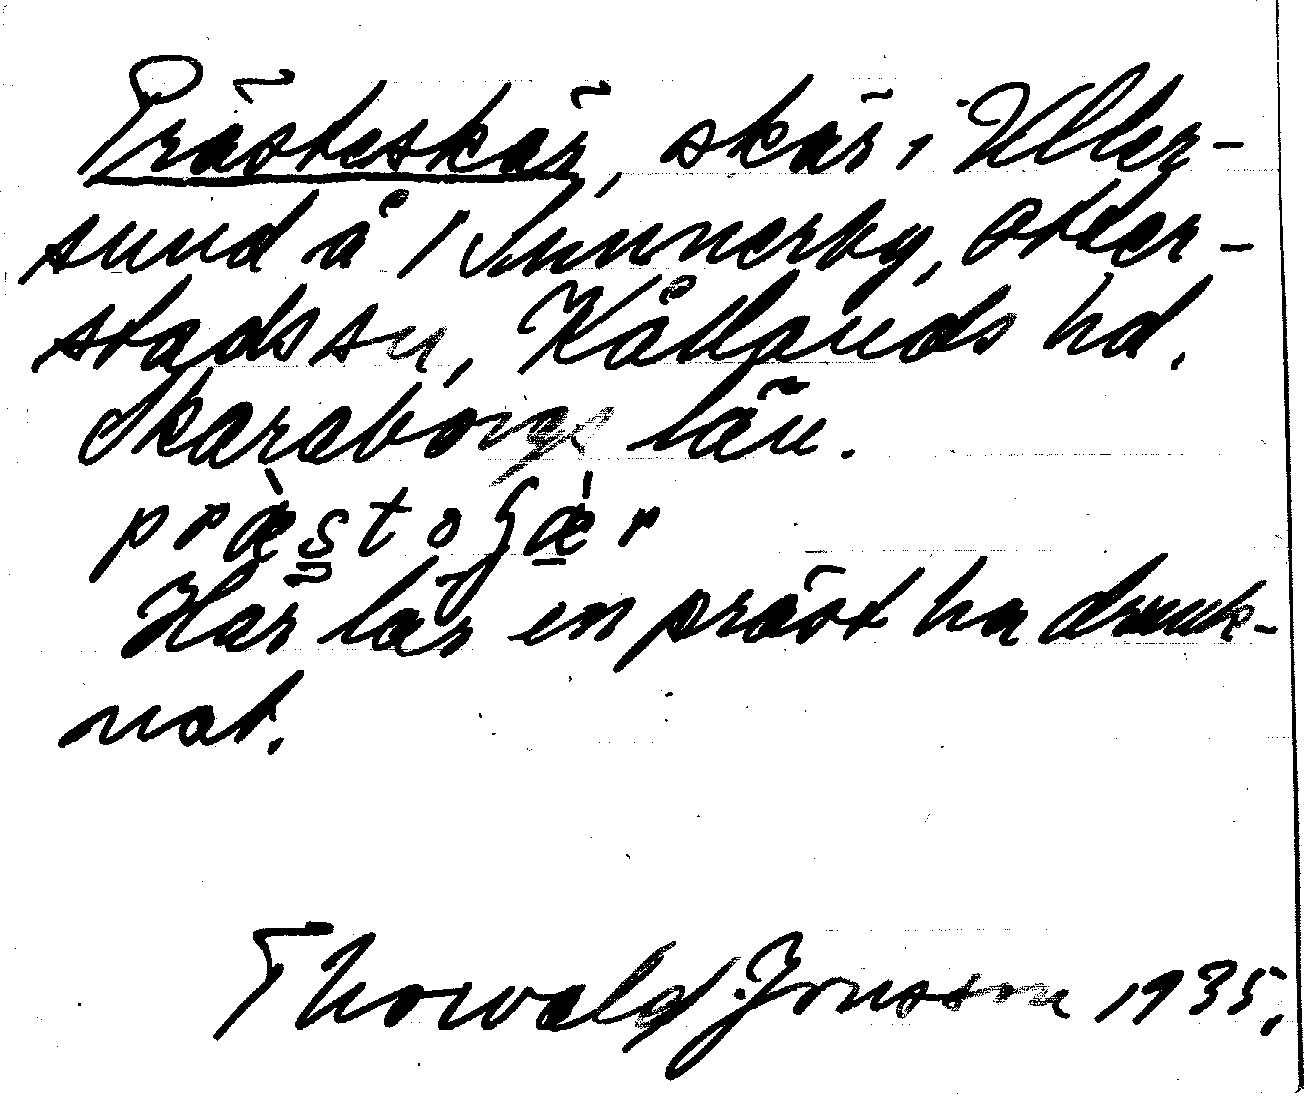 Prästeskär, skär i Uller-
sund å 1 Sunnerby, Otter-
stads sn, Kållands hd.
Skaraborgs län.
præ̀stoʃæ̍r
Här lär en präst ha drunk-
nat.
Thorvald Jonsson 1935.